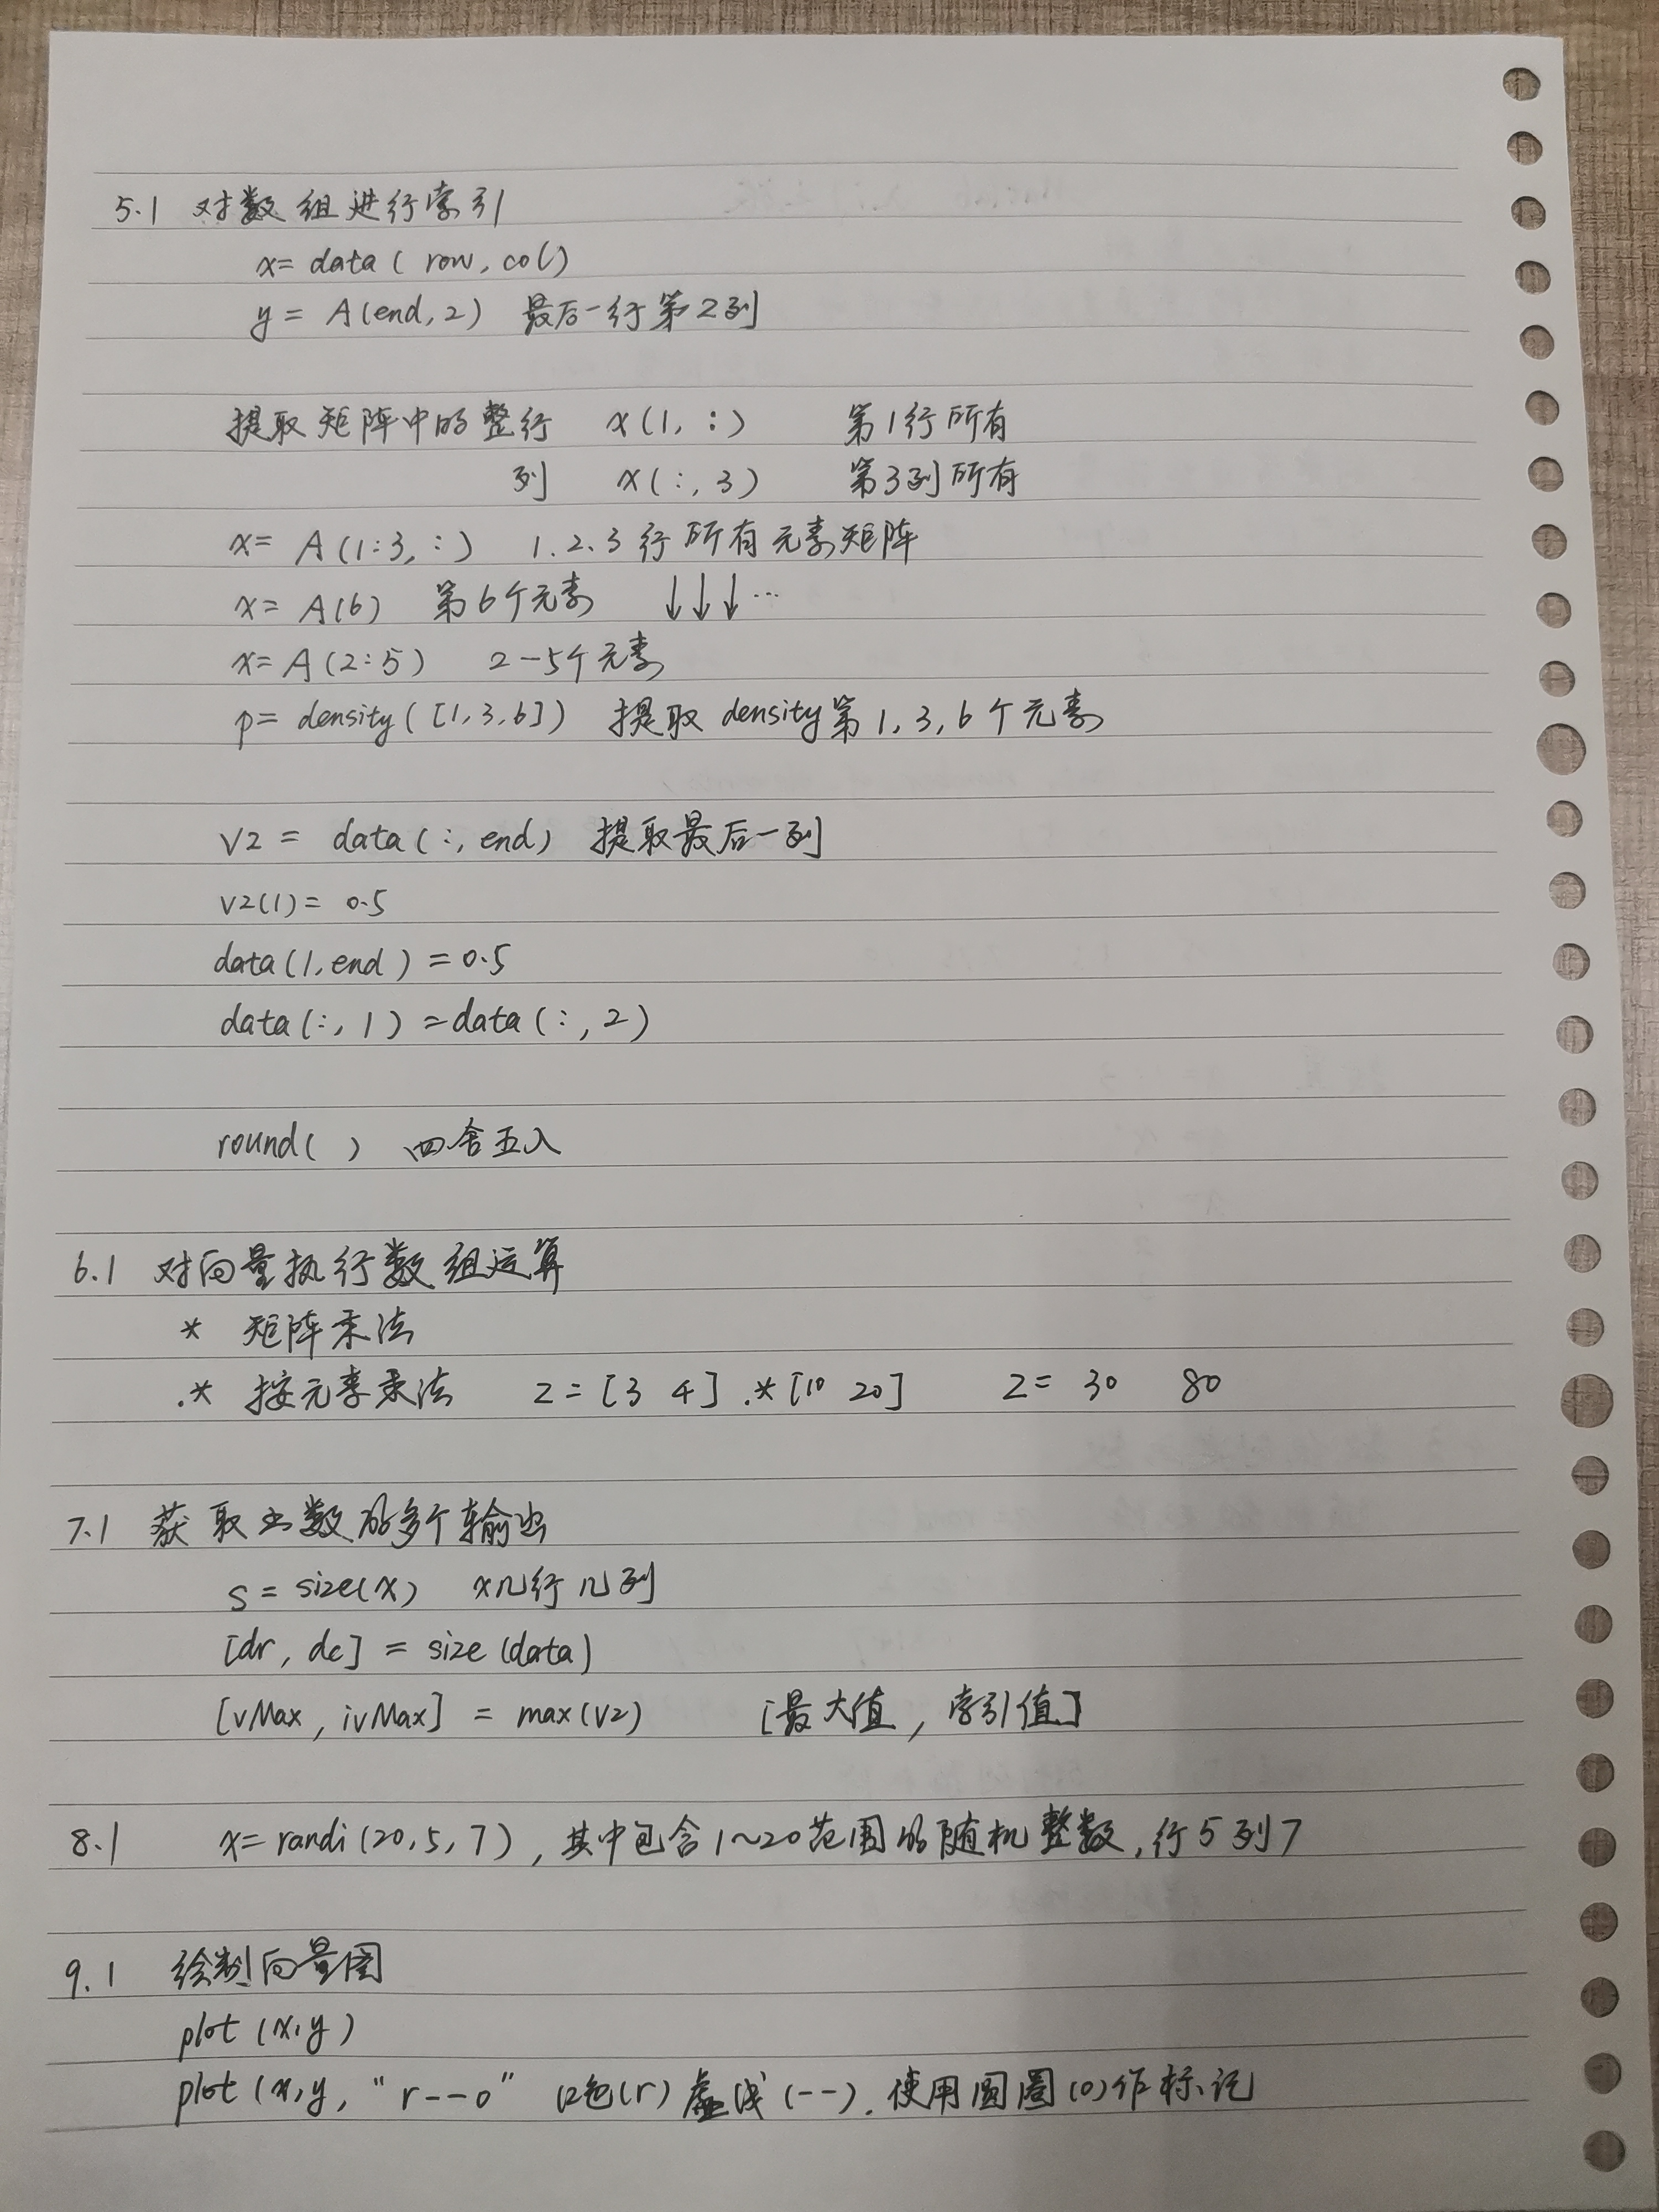 5.1 对数组进行索引
x= data ( row, col)
y = A(end, 2) 最后一行第2列
提取矩阵中的整行 x(1, :) 第1行所有
列 x(:, 3) 第3列所有
x= A(1:3, :) 1.2.3行所有元素矩阵
x= A(6) 第6个元素 ↓↓↓…
x= A(2:5) 2-5个元素
p= density([1,3,6]) 提取density第1,3,6个元素
V2 = data(:, end) 提取最后一列
V2(1) = 0.5
data(1,end) = 0.5
data(:, 1) = data(:, 2)
round( ) 四舍五入
6.1 对向量执行数组运算
* 矩阵乘法
.* 按元素乘法 Z=[3 4] .*[10 20] Z= 30 80
7.1 获取函数的多个输出
s = size(x) x几行几列
[dr, dc] = size(data)
[vMax, ivMax] = max(V2) [最大值, 索引值]
8.1 x= randi(20,5,7), 其中包含1~20范围的随机整数,行5列7
9.1 绘制向量图
plot (x,y)
plot (x,y, "r--o" 红色(r)虚线(--).使用圆圈(o)作标记